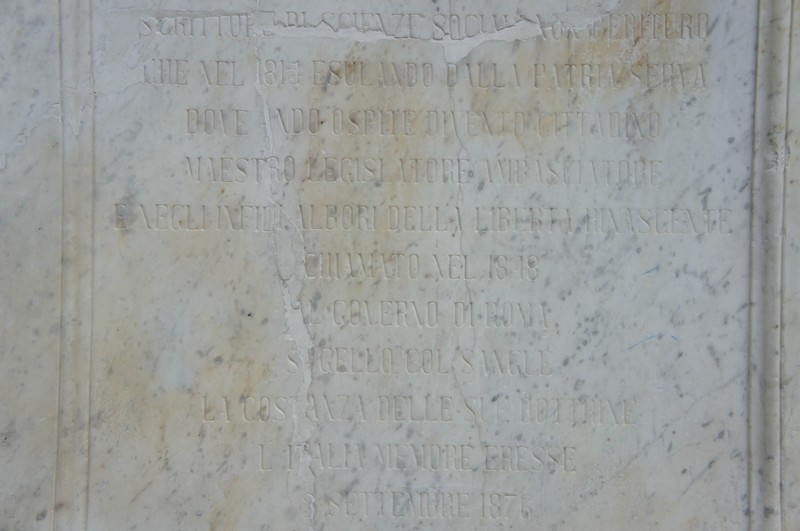 SCRITTORE DI SCIENZE SOCIALI NON
CHE NEL 181 ESULANDO DALLA PATRIA SERVA
DOVE ANDO OSPITE DIVENTO CITTADINO
MAESTRO LEGISLATORE AMBASCIATORE
E NEGLI INFIDI ALBORI DELLA LIBERTA RINASCENTE
CHIAMATO NEL 1848
AL GOVERNO DI ROMA,
SUGELLO COL SANGUE
LA COSTANZA DELLE SUE DOTTRINE
L'ITALIA MEMORE ERESSE
3 SETTEMBRE 1876